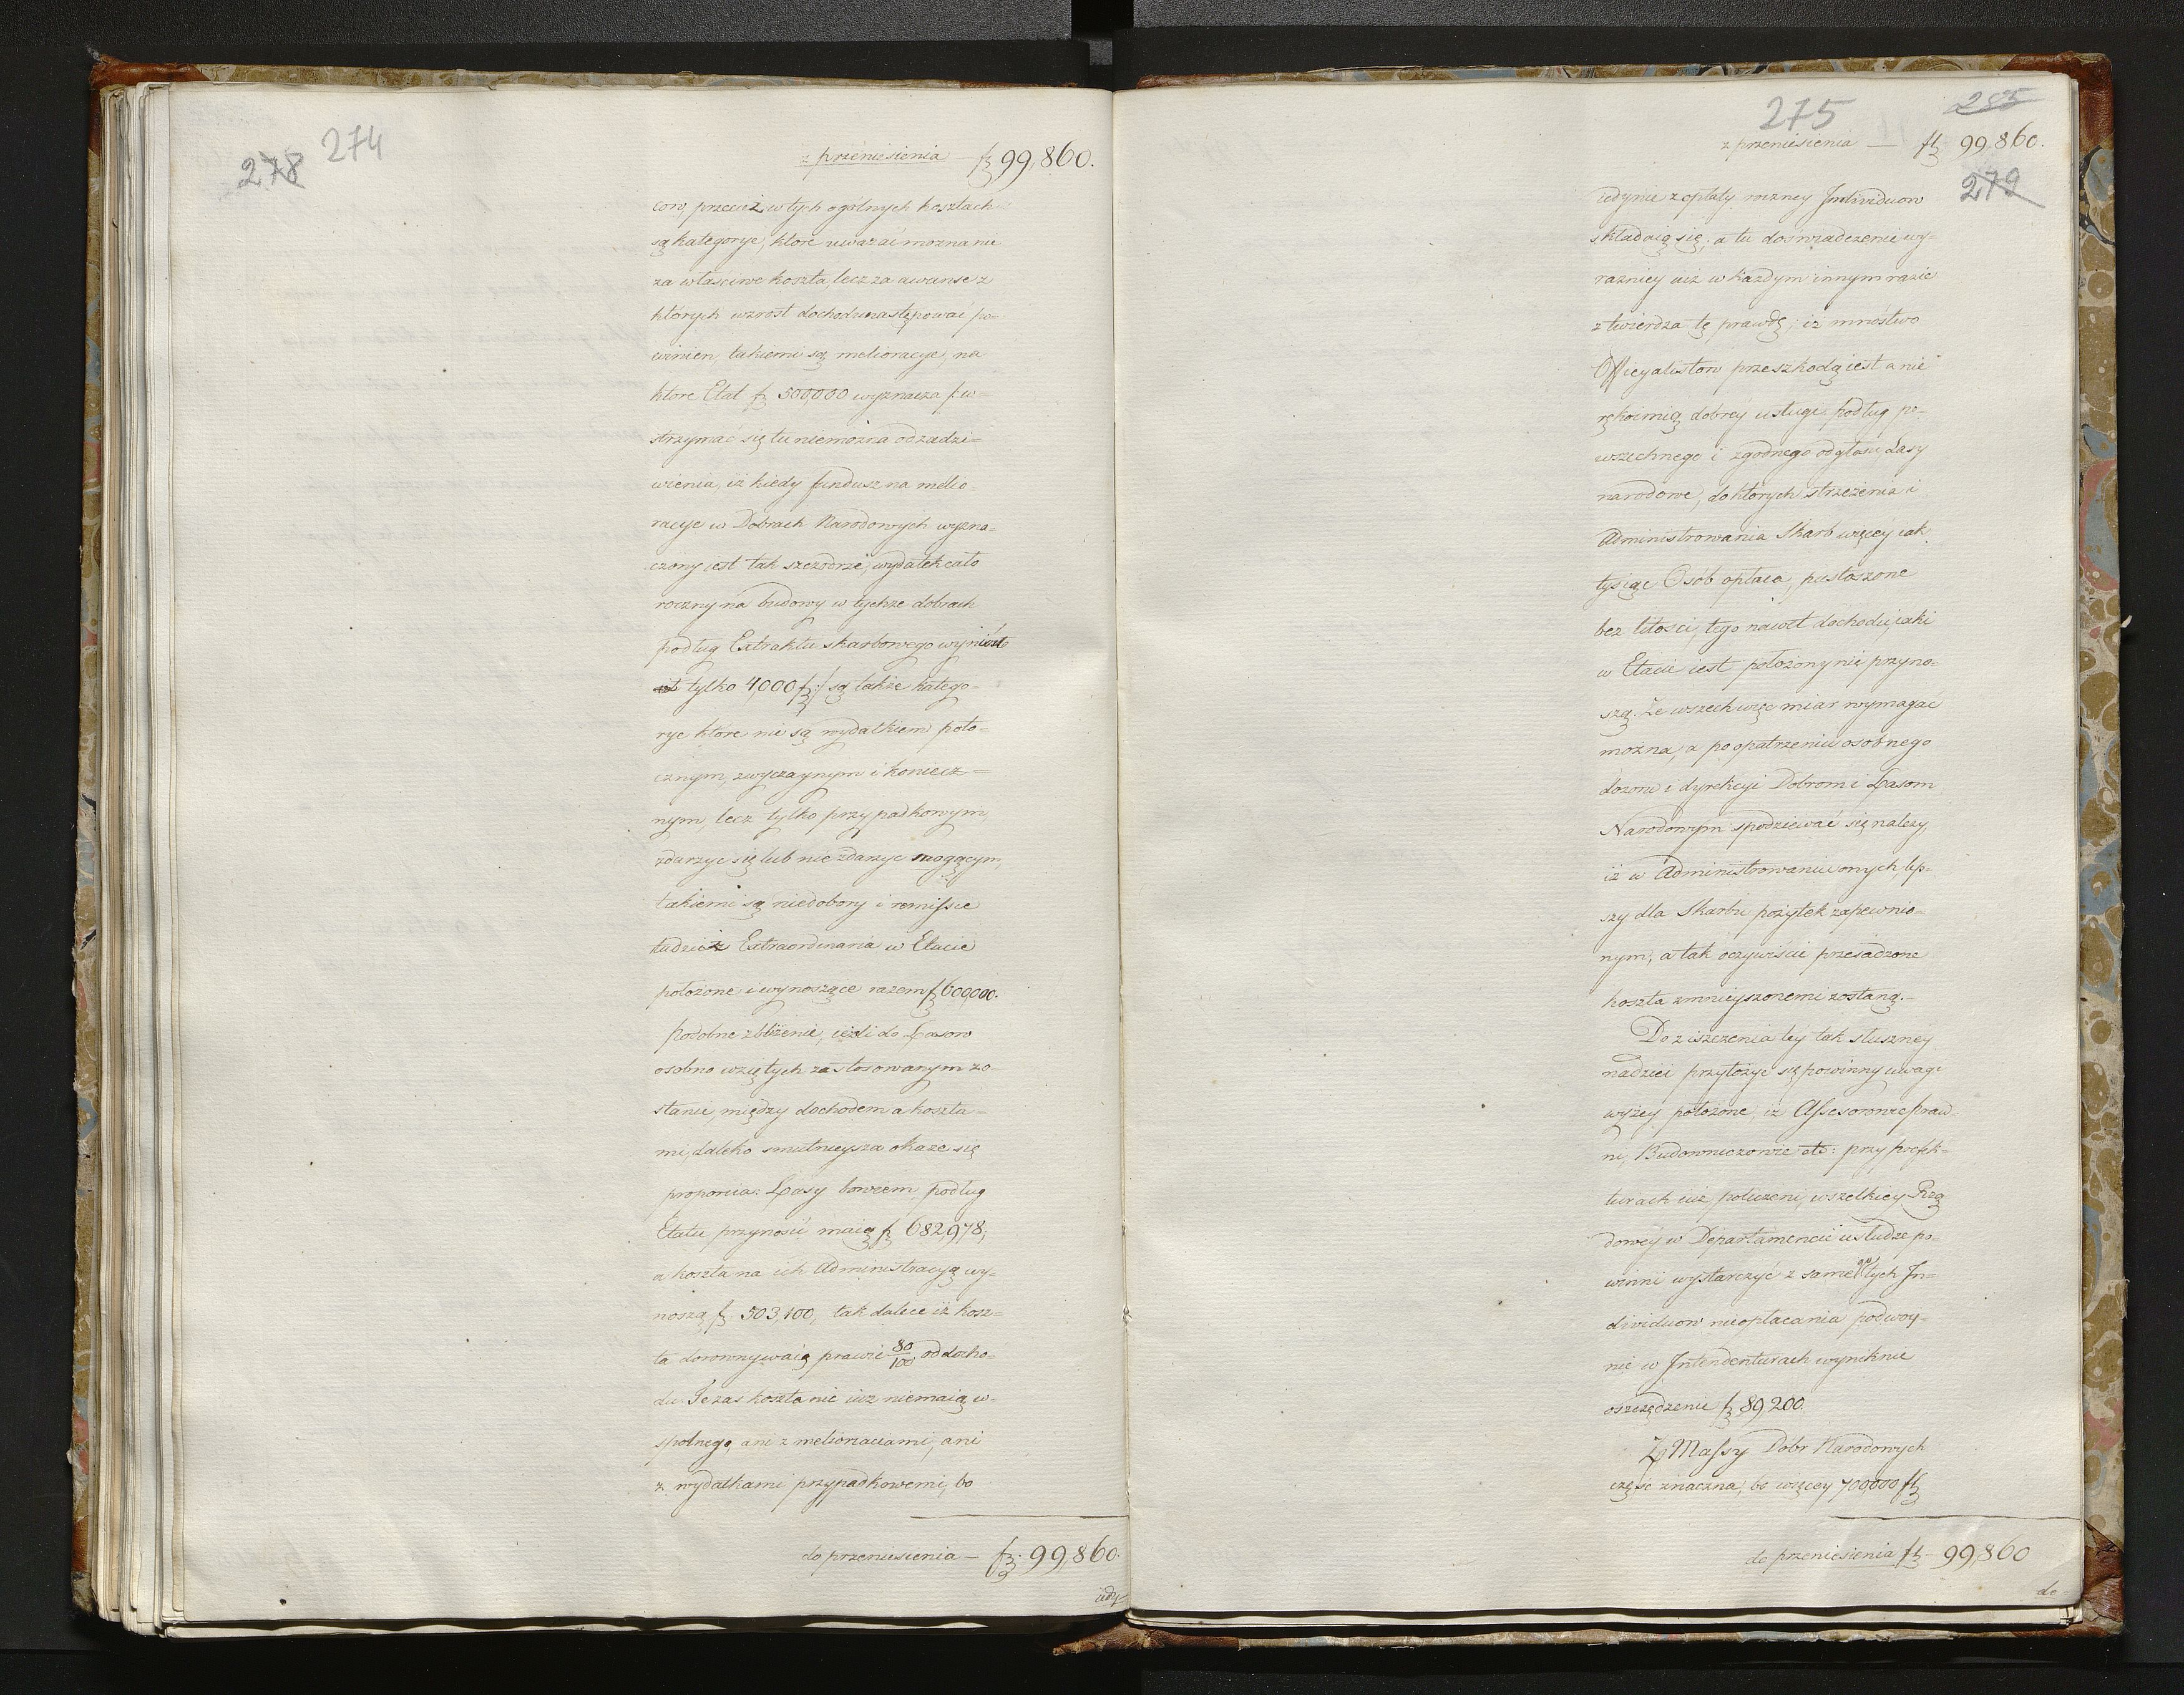 274
278
z przeniesienia — fz 99,860.
cow, przecież w tych ogolnych kosztach
są kategorye, ktore uważać można nie
za właściwe koszta, lecz za awanse z
których wzrost dochodu następować po=
winien, takiemi są melioracye, na
ktore Etat fz 500,000 wyznacza /: w=
strzymać się tu niemożna od zadzi=
wienia, iż kiedy fundusz na melio=
racye w Dobrach Narodowych wyzna=
czony iest tak szczodrze, wydatek cało
roczny na budowy w tychże dobrach
podług Extraktu skarbowego wyniósł
tylko 4,000 fz :/ są także katego=
rye ktore nie są wydatkiem poto=
cznym, zwyczaynym i koniecz=
nym, lecz tylko przypadkowym,
zdarzyc się lub nie zdarzyc mogącym,
takiemi są niedobory i remissie
tudzież Extraordinaria w Etacie
położone i wynoszące razem fz 600,000.
Podobne zbliżenie, ieżli do Lasow
osobno wziętych zastosowanym zo=
stanie, między dochodem a koszta=
mi, daleko smutnieysza okaze się
proporcia: Lasy bowiem podług
Etatu przynosić maią fz 682,978,
a koszta na ich Administracyą wy=
noszą fz 503,100, tak dalece iż kosz=
ta dorownywaią prawie 80/100 od docho=
du. Te zas koszta nic iuz niemaią w=
spolnego, ani z melioraciami, ani
z wydatkami przypadkowemi, bo
do przeniesienia — fz. 99,860.
iedy=
275
285
z przeniesienia — fz 99,860.
279
iedynie z opłaty roczney Individuow
składaią się, a tu doświadczenie wy=
razniey niż w każdym innym razie
ztwierdza tę prawdę, iż mnóstwo
Officyalistow przeszkodą iest a nie
rękoimią dobrey usługi. Podług po=
wszechnego i zgodnego odgłosu, Lasy
narodowe, do których strzeżenia i
Administrowania Skarb więcey iak
tysiąc Osób opłaca, pustoszone
bez litości, tego nawet dochodu, iaki
w Etacie iest położony nie przyno=
szą. Ze wszech więc miar wymagać
można, a po opatrzeniu osobnego
dozoru i dyrekcyi Dobrom i Lasom
Narodowym spodziewać się nalezy,
iż w Administrowaniu onych, lep=
szy dla Skarbu pożytek zapewnio=
nym, a tak oczywiście przesadzone
koszta zmnieyszonemi zostaną.—
Do ziszczenia tey tak słuszney
nadziei przyłożyc się powinny uwagi
wyżey położone, iż Assesorowie praw=
ni, Budowniczowie etc: przy prefek=
turach iuż policzeni, wszelkiey Rzą
dowey w Departamencie usłudze po=
winni wystarczyć z samego tych In=
dividuow nieopłacania podwoy=
nie w Intendenturach wyniknie
oszczędzenie fz 89 200.
Z Massy Dobr Narodowych
częsc znaczna, bo więcey 700,000 fz
do przeniesienia fz — 99,860
do